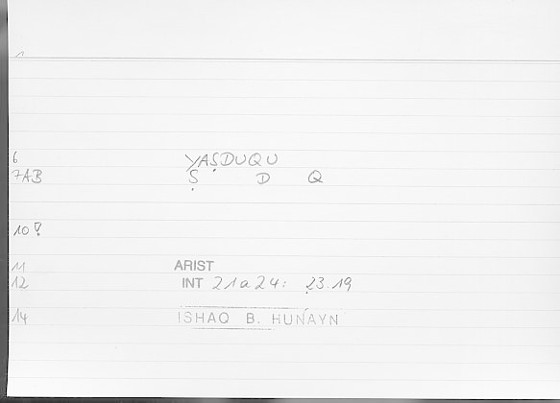 1
6 YAṢDUQU
7AB Ṣ D Q
10?
11 ARIST
12 INT 21a24: 23.19
14 ISHAQ B. HUNAYN